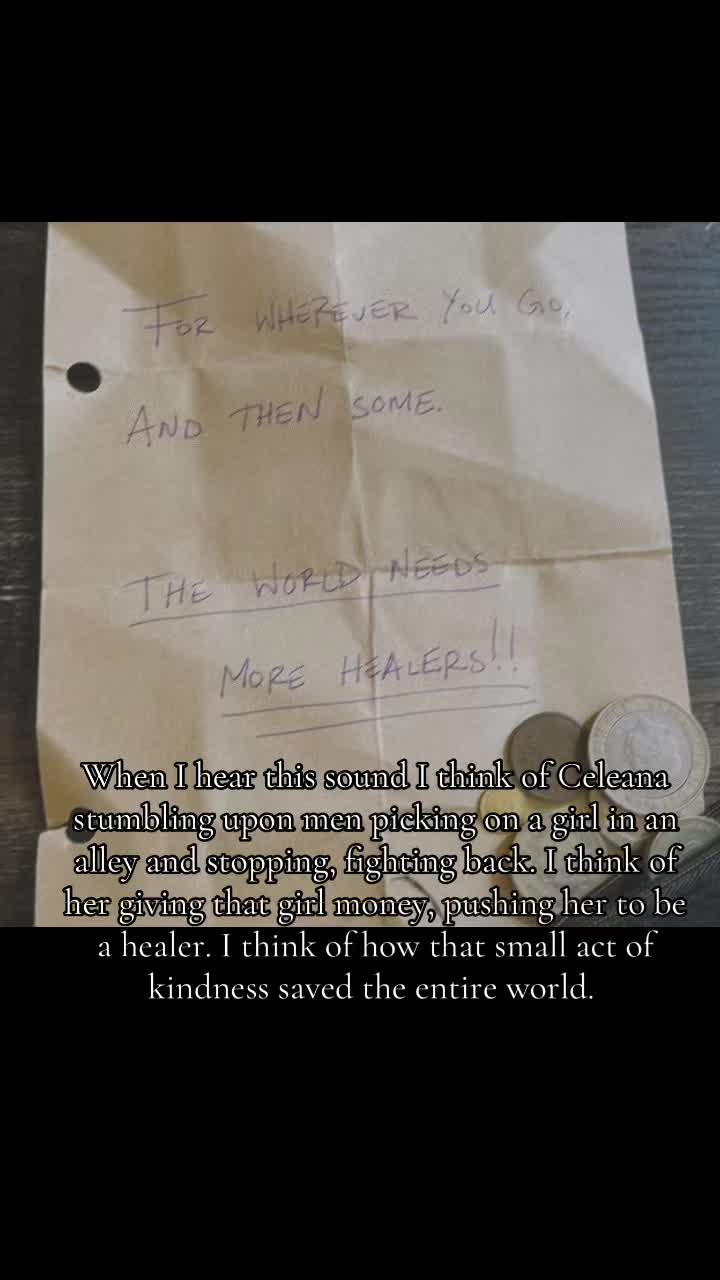 FOR WHEREVER YOU GO,
AND THEN SOME.
THE WORLD NEEDS
MORE HEALERS!!
When I hear this sound I think of Celeana
stumbling upon men picking on a girl in an
alley and stopping, fighting back. I think of
her giving that girl money, pushing her to be
a healer. I think of how that small act of
kindness saved the entire world.